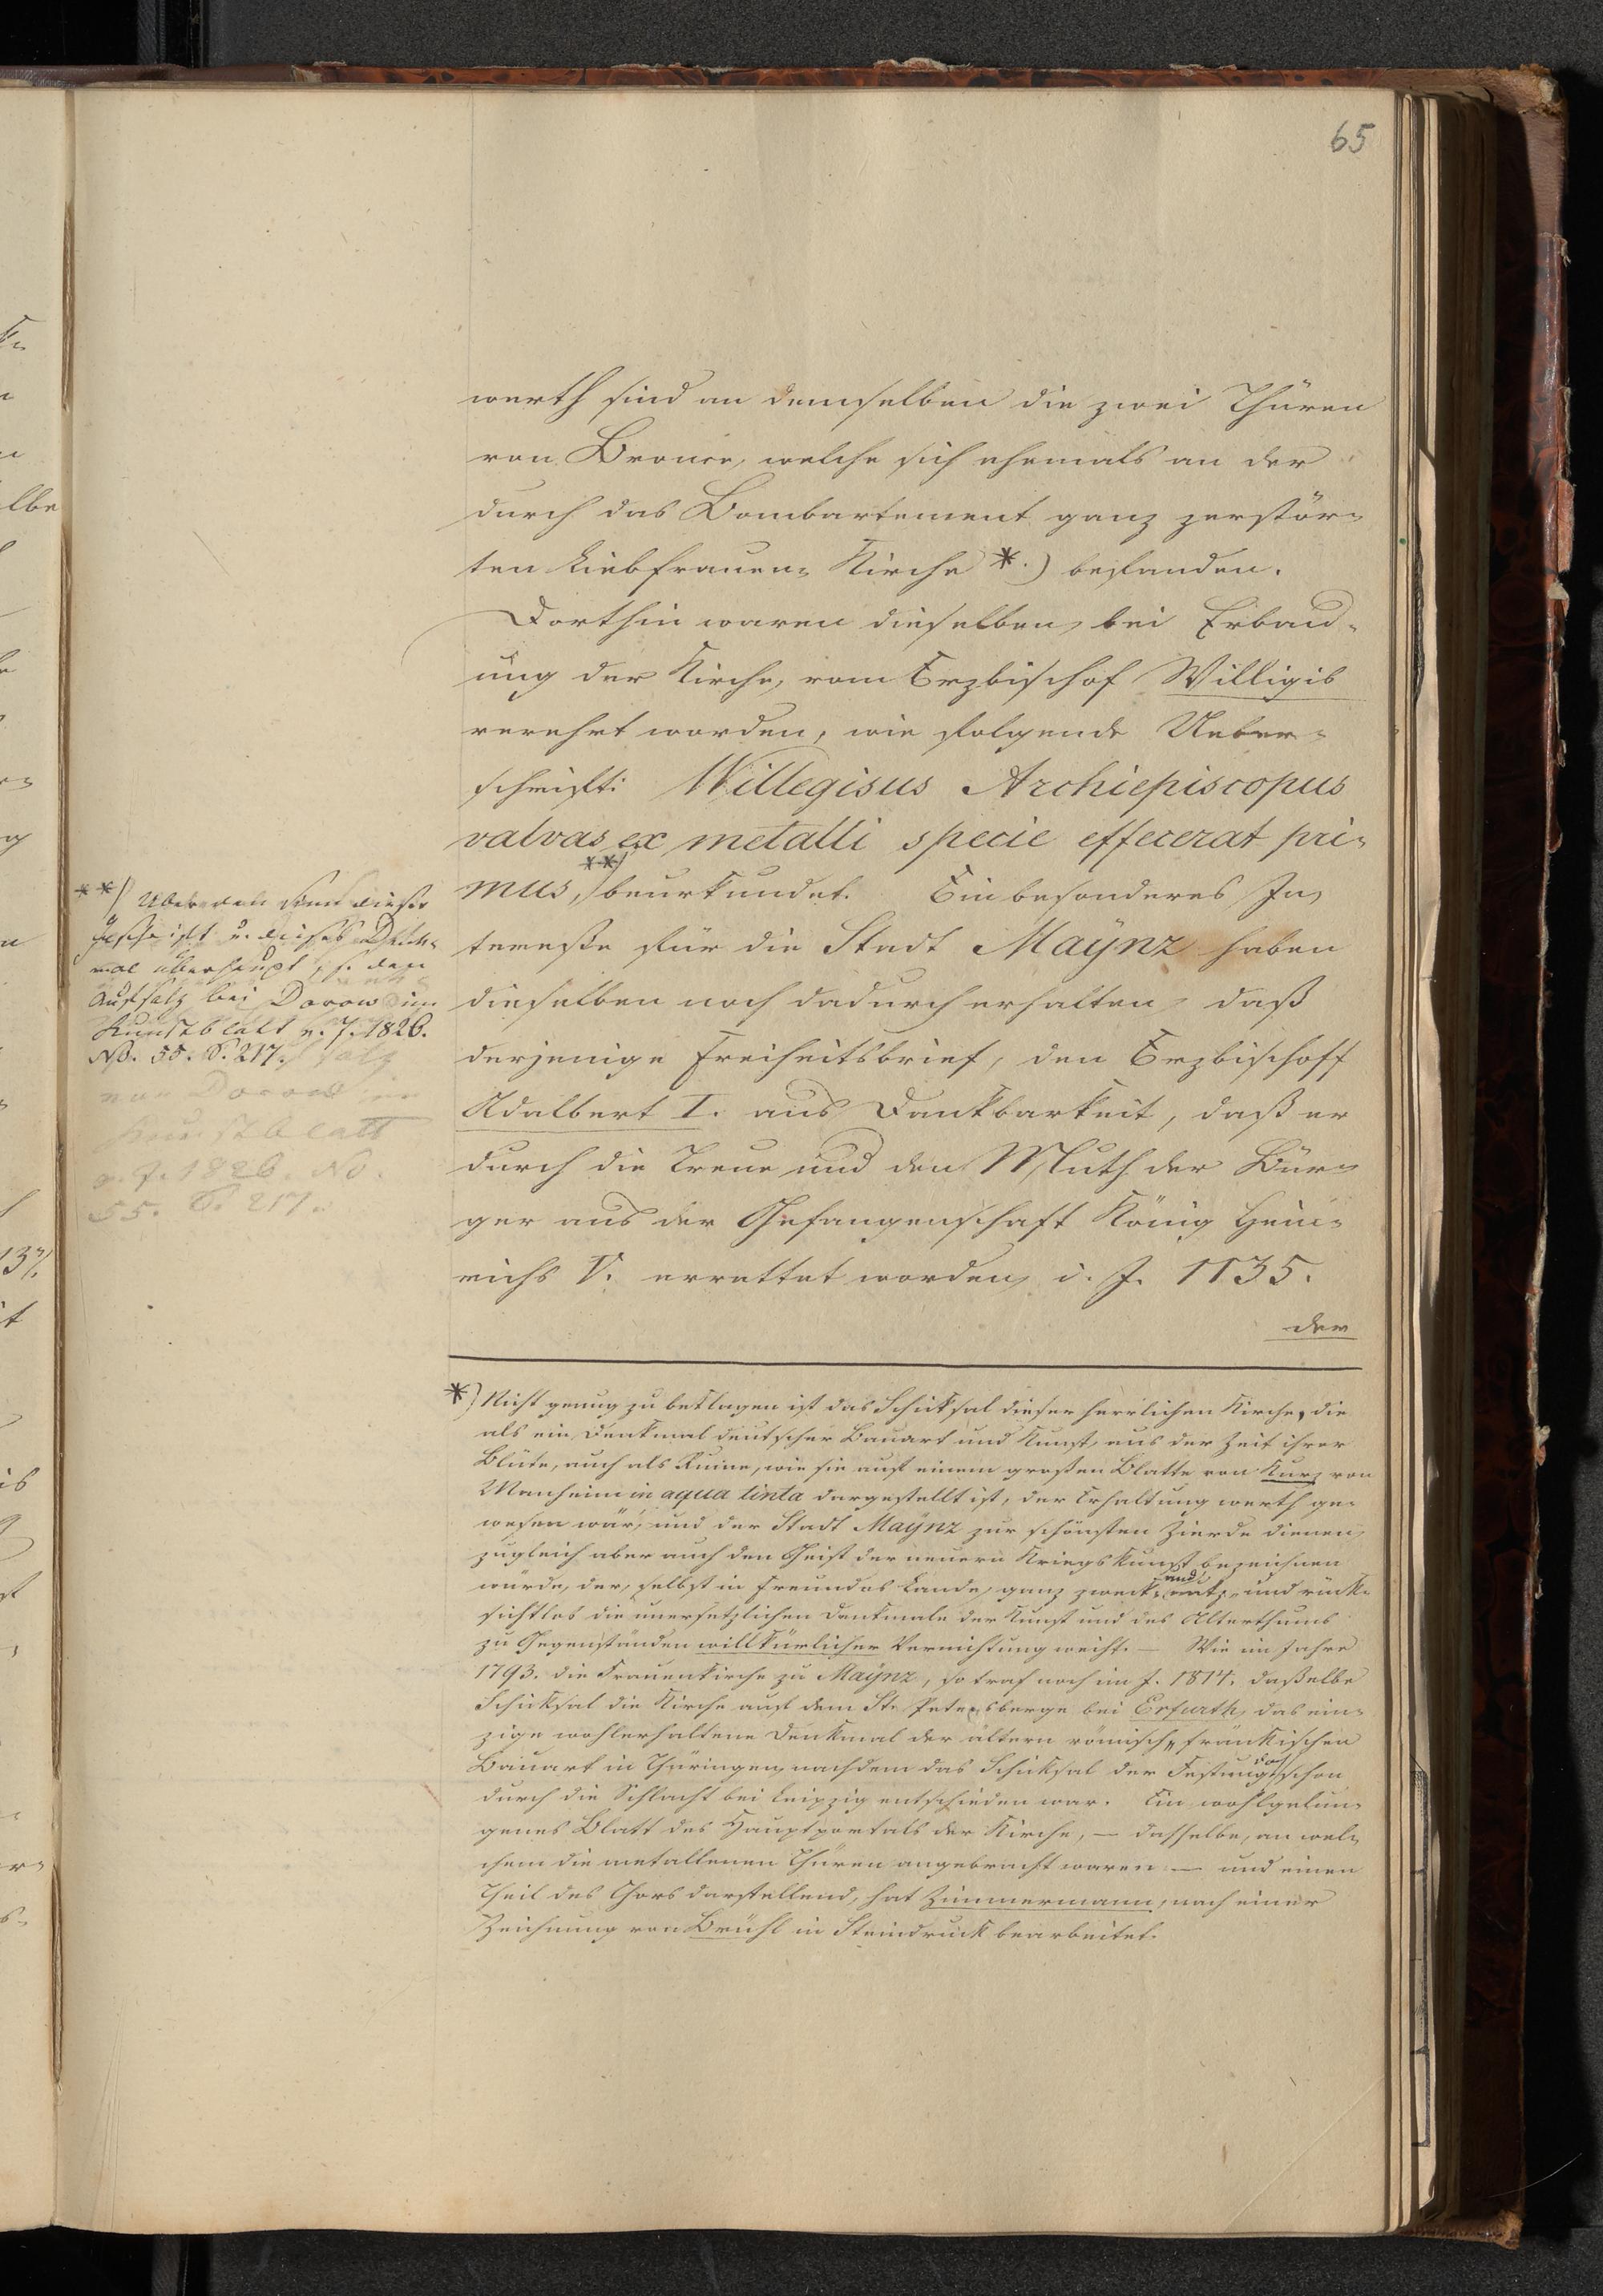 65
werth sind an demselben die zwei Thüren
von Bronce, welche sich ehemals an der
durch das Bombartement ganz zerstör-
ten Liebfrauen- Kirche *.) befanden.
Dorthin waren dieselben, bei Erbau-
ung der Kirche, vom Erzbischof Willigis
verehrt worden, wie folgende Ueber-
schrift: Willegisus Archiepiscopus
valvas ex metalli specie effecerat pri-
mus, **) beurkundet. Ein besonderes In-
teresse für die Stadt Maÿnz haben
dieselben noch dadurch erhalten, daß
derjenige Freiheitsbrief, den Erzbischoff
Adalbert I. aus Dankbarkeit, daß er
durch die Treue und den Muth der Bür-
ger aus der Gefangenschaft König Hein-
richs V. errettet worden, i. J. 1135.
der
**) Ueber den Sinn dieser
Inschrift u. dieses Denk-
mal überhaupt, s. den
Aufsatz bei Dorow im
Kunstblatt v. J. 1826.
No. 55. S. 217.
von Dorow im
Kunstblatt
v. J. 1826. No.
55. S. 217.
*) Nicht genug zu beklagen ist das Schicksal dieser herrlichen Kirche, die
als ein Denkmal deutscher Bauart und Kunst, aus der Zeit ihrer
Blüte, auch als Ruine, wie sie auf einem großen Blatte von Kunz von
Manheim in aqua tinta dargestellt ist, der Erhaltung werth ge-
wesen wär, und der Stadt Maÿnz zur schönsten Zierde dienen,
zugleich aber auch den Geist der neuern Kriegskunst bezeichnen
würde, der, selbst in Freundes Lande, ganz zweck- und nutz- und rück-
sichtlos die unersetzlichen Denkmale der Kunst und des Alterthums
zu Gegenständen willkürlicher Vernichtung weiht. — Wie im Jahre
1793. die Frauenkirche zu Maÿnz, so traf noch im J. 1814. daßelbe
Schicksal die Kirche auf dem St. Petersberge bei Erfurth, das ein-
zige wohlerhaltene Denkmal der ältern römisch-fränkischen
Bauart in Thüringen, nachdem das Schicksal der Festung doch schon
durch die Schlacht bei Leipzig entschieden war. Ein wohlgelun-
genes Blatt des Hauptportals der Kirche, — dasselbe, an wel-
chem die metallenen Thüren angebracht waren — und einen
Theil des Chors darstellend, hat Zimmermann, nach einer
Zeichnung von Brühl in Steindruck bearbeitet.